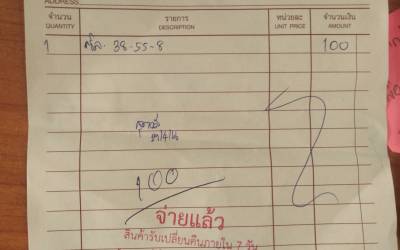 ADDRESS
จำนวน รายการ หน่วยละ จำนวนเงิน
QUANTITY DESCRIPTION UNIT PRICE AMOUNT
1 38-55-8 100
100
จ่ายแล้ว
สินค้ารับเปลี่ยนคืนภายใน 7 วัน